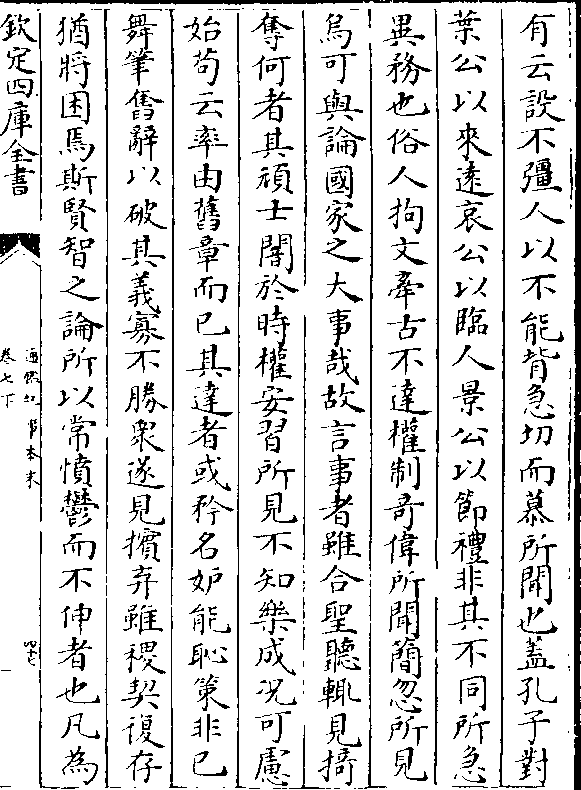 有云設不彊人以不能背急切而慕所聞也蓋孔子對
葉公以來逺哀公以臨人景公以節禮非其不同所急
異務也俗人拘文牽古不達權制奇偉所聞簡忽所見
烏可與論國家之大事哉故言事者雖合聖聽輒見掎
奪何者其頑士闇於時權安習所見不知樂成况可慮
始茍云率由舊章而已其達者或矜名妒能恥策非已
舞筆奮辭以破其義寡不勝衆遂見擯弃雖稷契復存
猶將困焉斯賢智之論所以常憤鬱而不伸者也凡為
欽定四庫全書
通鑑紀事本末
卷七下